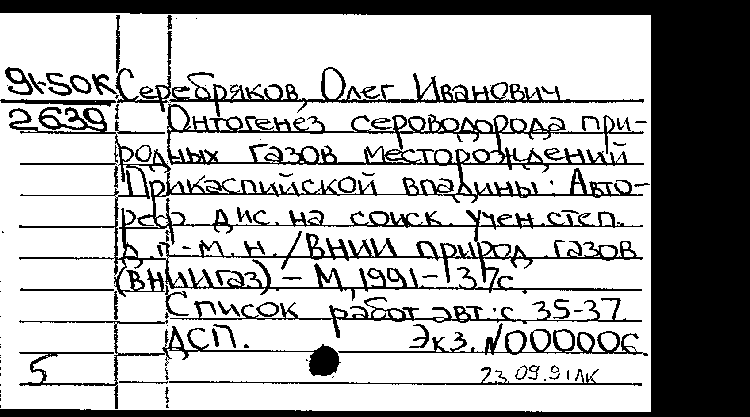 91-50К Серебряков, Олег Иванович
2639 Онтогенез сероводорода при-
родных газов месторождений
Прикаспийской впадины: Авто-
реф. дис. на соиск. учен. степ.
д.г.-м.н. / ВНИИ природ. газов
(ВНИИгаз). - М., 1991. - 37с.
Список работ авт.: с. 35-37.
ДСП. Экз. №000006.
5 23.09.91 ЛК